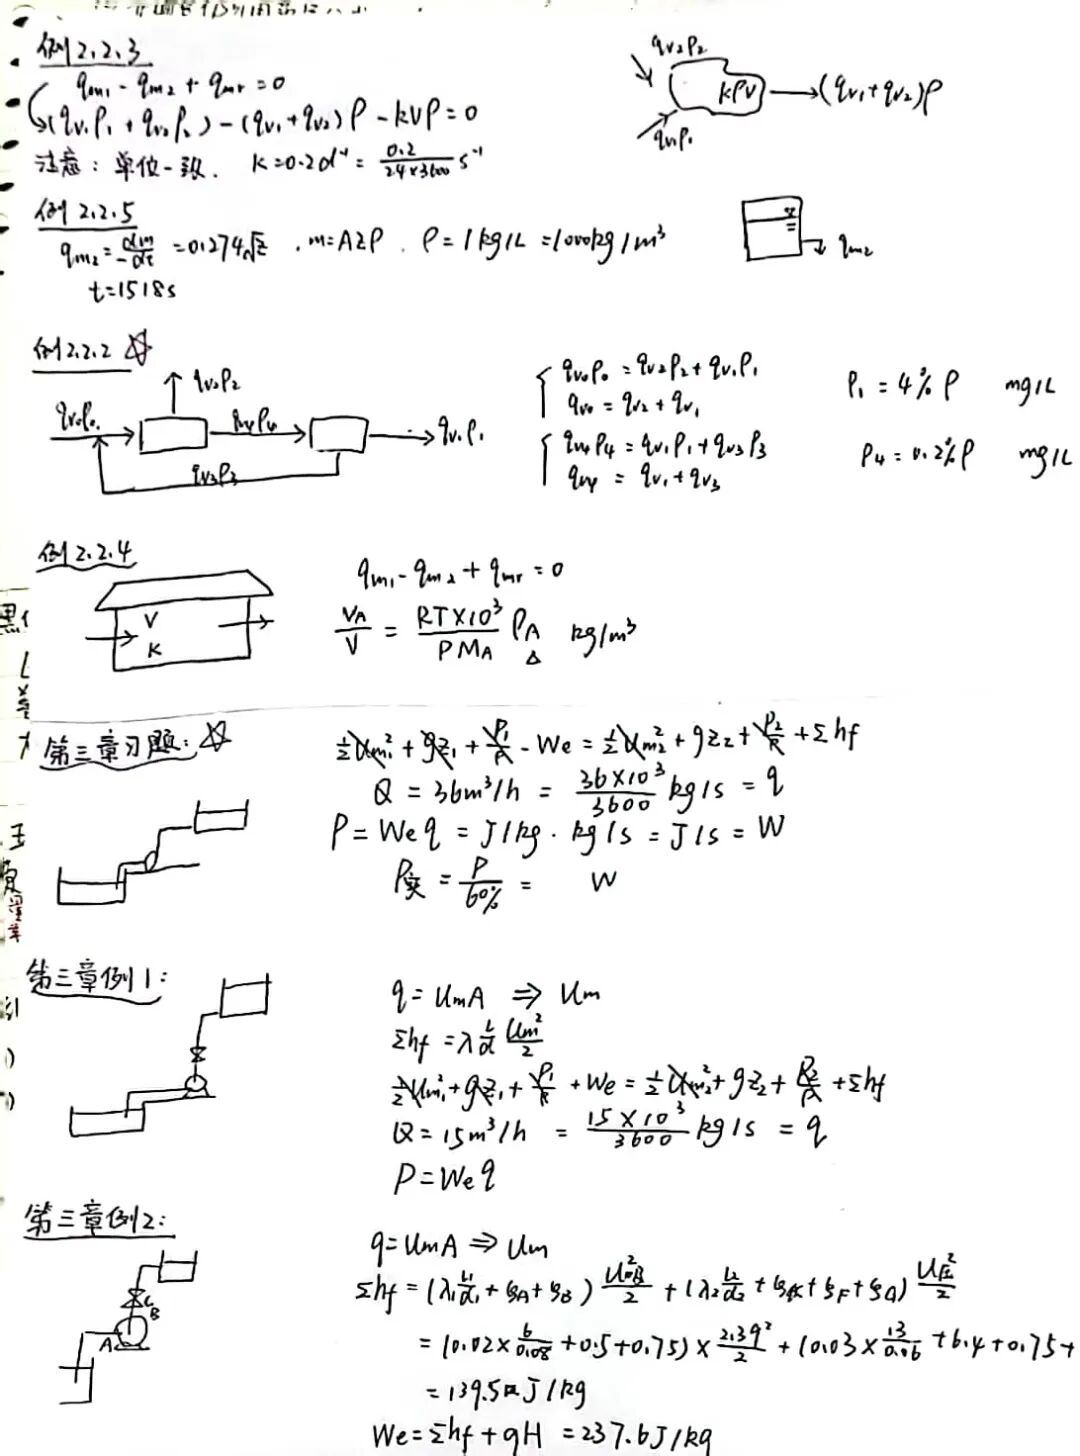 例2.2.3
qm1 - qm2 + qmr = 0
(qv1ρ1 + qv2ρ2) - (qv1 + qv2)ρ - kVρ = 0
注意：单位一致. K=0.2d⁻¹ = 0.2/(24×3600) s⁻¹
qv2ρ2
kρV
(qv1+qv2)ρ
qv1ρ1
例2.2.5
qm2 = -dm/dt = 0.274√z . m=AZρ . ρ=1kg/L =1000kg/m³
qm2
t=1518s
例2.2.2 ☆
qv2ρ2
qv0ρ0
qv4ρ4
qv1ρ1
qv3ρ3
qv0ρ0 = qv2ρ2 + qv1ρ1
qv0 = qv2 + qv1
ρ1 = 4% ρ mg/L
qv4ρ4 = qv1ρ1 + qv3ρ3
qv4 = qv1 + qv3
ρ4 = 0.2% ρ mg/L
例2.2.4
V
K
qm1 - qm2 + qmr = 0
VA/V = RT×10³/PMA ρA kg/m³
第三章习题：☆
½Um1² + gz1 + P1/ρ - We = ½αUm2² + gz2 + P2/ρ + Σhf
Q = 36m³/h = 36×10³/3600 kg/s = q
P = We q = J/kg · kg/s = J/s = W
P实 = P/60% = W
第三章例1：
q = UmA ⇒ Um
Σhf = λ L/d Um²/2
½Um1² + gz1 + P1/ρ + We = ½αUm2² + gz2 + P2/ρ + Σhf
Q = 15m³/h = 15×10³/3600 kg/s = q
P = We q
第三章例2：
A
B
q = UmA ⇒ Um
Σhf = (λ1 L1/d1 + ξA + ξB) /2 + (λ2 L2/d2 + + ξF + ) /2
= (0.02× 6/0.08 +0.5+0.75)× 2.39²/2 + (0.03× 13/0.06 +6.4+0.75+
= 139.5 J/kg
We = Σhf + gH = 237.6J/kg